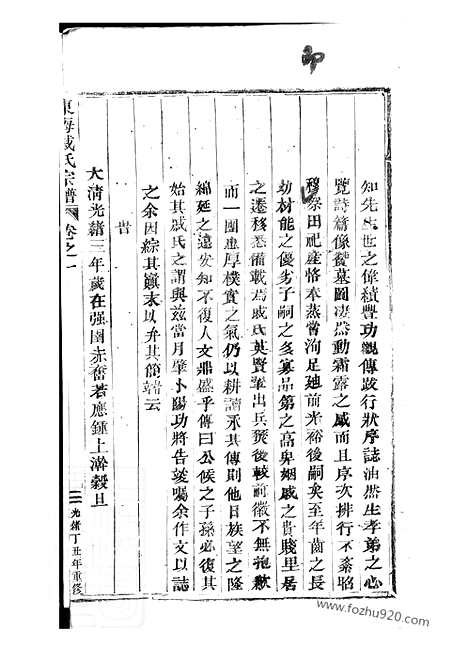 卬
知先生世之偉績豐功觀傳政行狀序誌油然生孝弟之心
覽詩簷像贊墓圖凄然動霜露之感而且序次排行不紊昭
穆祭田祀產恪奉蒸嘗洵足廸前光裕後嗣矣至年齒之長
幼材能之優劣子嗣之多寡品第之高卑姻戚之貴賤里居
之遷移悉備載焉戚氏英賢輩出兵燹後較前徽不無抱歉
而一團忠厚樸實之氣仍以耕讀承其傳則他日族望之隆
綿延之遠安知不復人文鼎盛乎傳曰公候之子孫必復其
始其戚氏之謂與茲當月肇小陽功將告竣囑余作文以誌
之余因綜其巔末以弁其簡端云
旹
大清光緒三年歲在强圉赤奮若應鍾上澣穀旦
東海戚氏宗譜 卷之一
三 光緒丁丑年重修
www.fozhu920.com